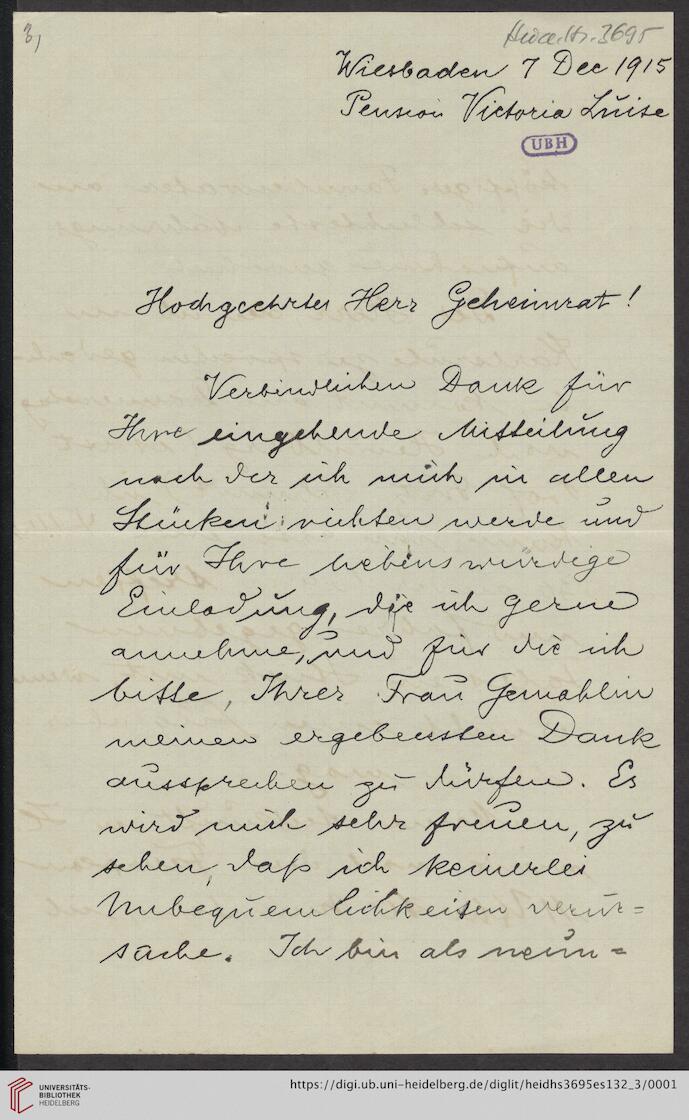 3,
Heid. Hs. 3695
Wiesbaden 7 Dec 1915
Pension Victoria Luise
UBH
Hochgeehrter Herr Geheimrat!
Verbindlichen Dank für
Ihre eingehende Mitteilung
nach der ich mich in allen
Stücken richten werde und
für Ihre liebenswürdige
Einladung, die ich gerne
annehme, und für die ich
bitte, Ihrer Frau Gemahlin
meinen ergebensten Dank
aussprechen zu dürfen. Es
wird mich sehr freuen, zu
sehen, daß ich keinerlei
Unbequemlichkeiten verur=
sache. Ich bin als neun=
UNIVERSITÄTS-
BIBLIOTHEK
HEIDELBERG
https://digi.ub.uni-heidelberg.de/diglit/heidhs3695es132_3/0001